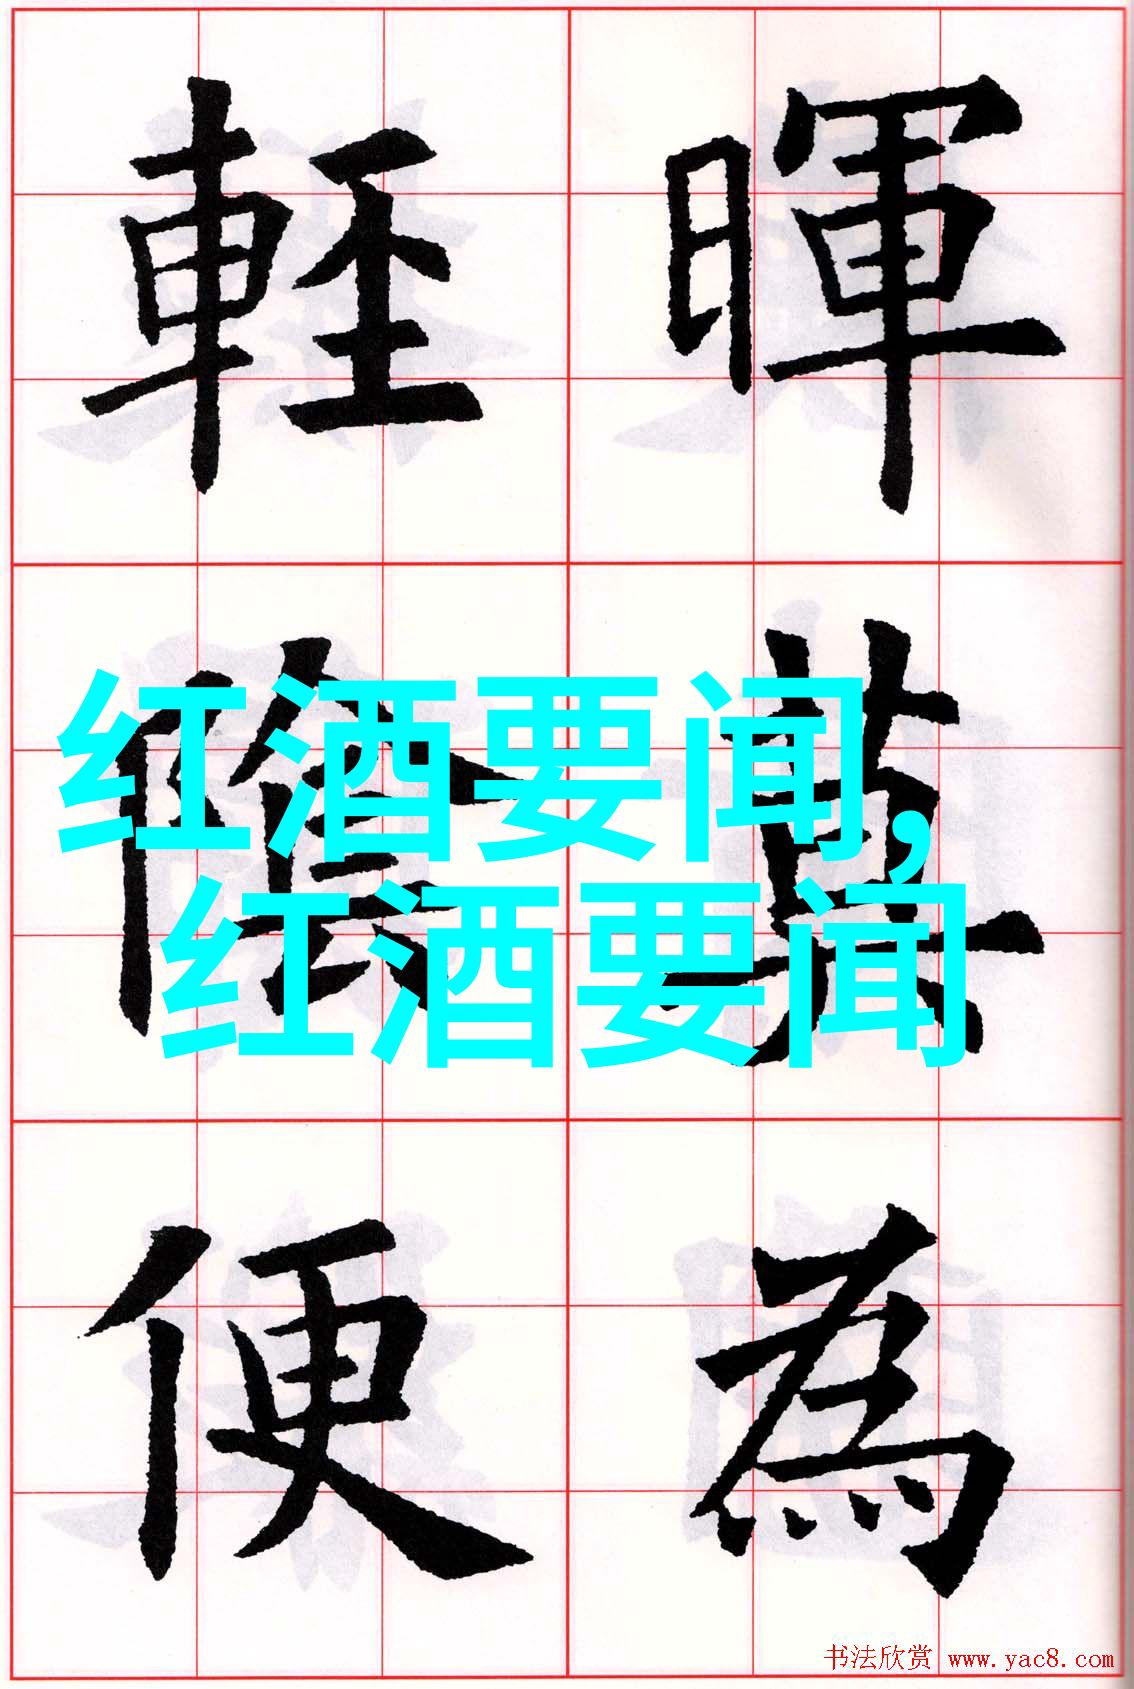 暉莫為
輕陰便
红酒要闻,
红酒要闻
书法欣赏 www.yac8.com